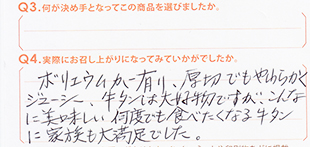 Q3.何が決め手となってこの商品を選びましたか。
Q4.実際にお召し上がりになってみていかがでしたか。
ボリュウムカー有り、厚切でもやわらかく
ジューシー、牛タンは大好物ですが、こんな
に美味しい何度でも食べたくなる牛タン
に家族も大満足でした。